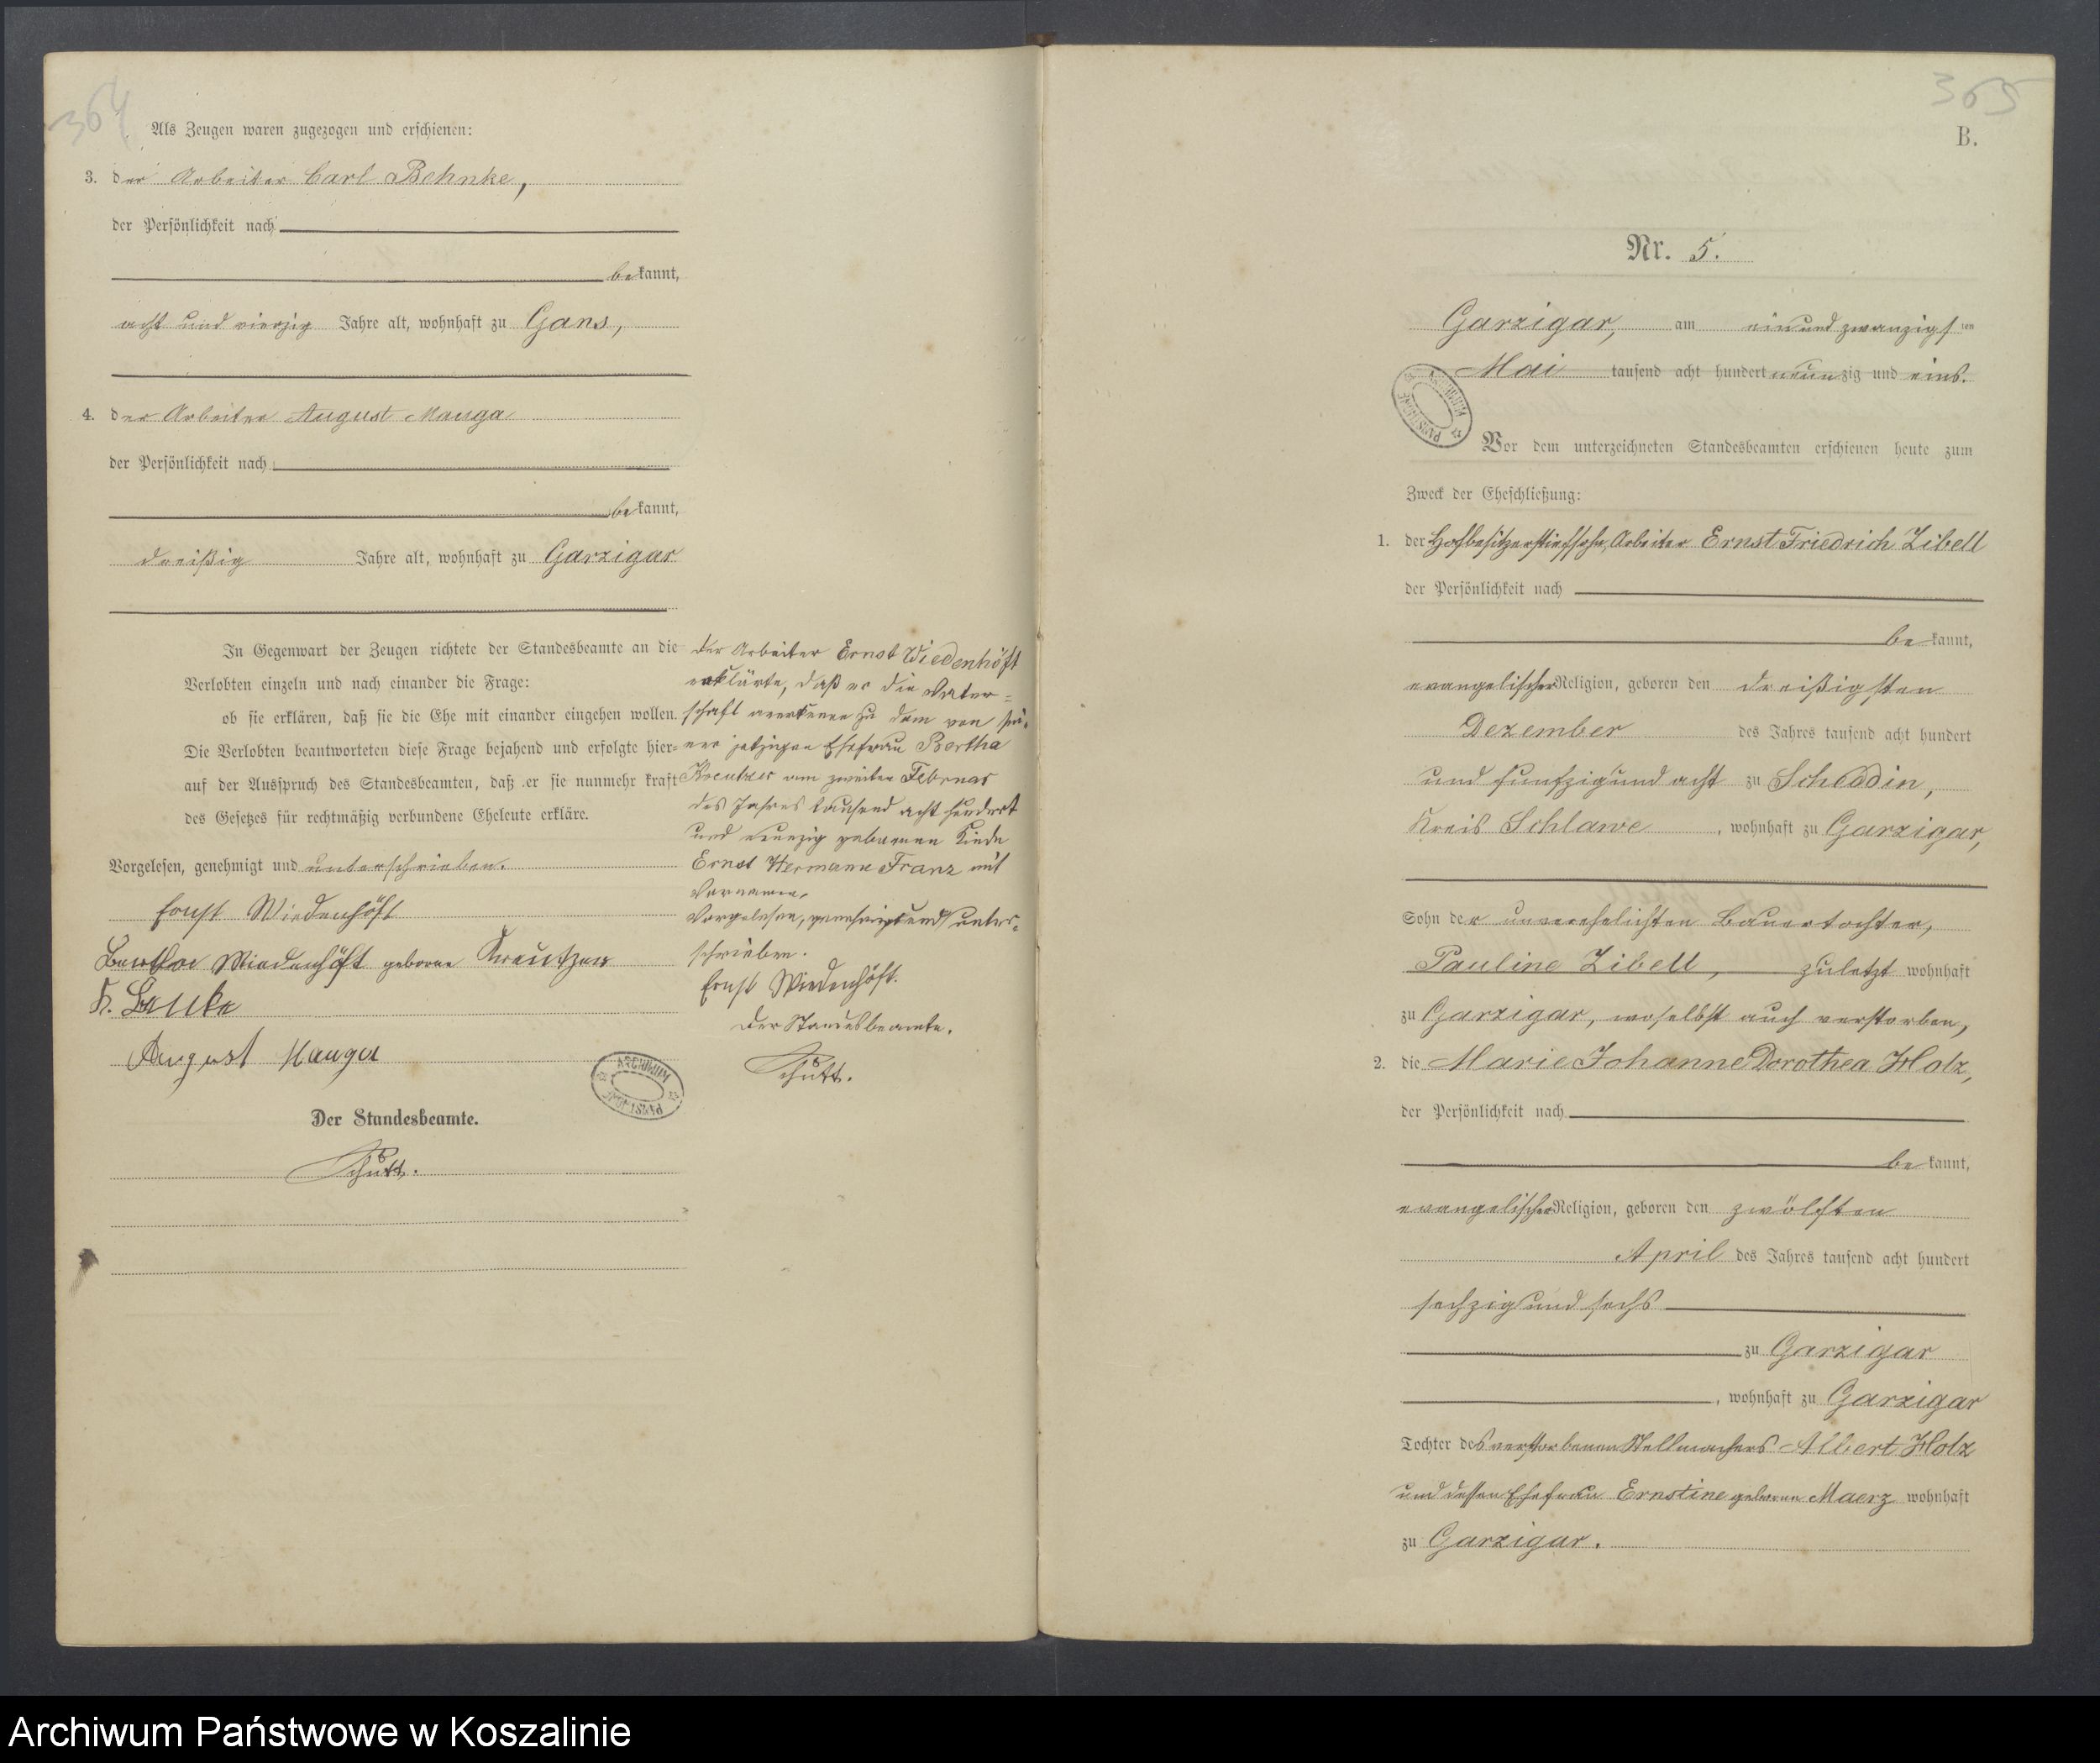 364
Als Zeugen waren zugezogen und erschienen:
3. der Arbeiter Carl Behnke,
der Persönlichkeit nach
bekannt,
acht und vierzig Jahre alt, wohnhaft zu Gans,
4. der Arbeiter August Mauga
der Persönlichkeit nach
bekannt,
dreißig Jahre alt, wohnhaft zu Garzigar
In Gegenwart der Zeugen richtete der Standesbeamte an die
Verlobten einzeln und nach einander die Frage:
ob sie erklären, daß sie die Ehe mit einander eingehen wollen.
Die Verlobten beantworteten diese Frage bejahend und erfolgte hier-
auf der Ausspruch des Standesbeamten, daß er sie nunmehr kraft
des Gesetzes für rechtmäßig verbundene Eheleute erkläre.
Vorgelesen, genehmigt und unterschrieben.
Ernst Wiedenhöft
Berthe Wiedenhöft geborne Kreutzer
August Mauga
Der Standesbeamte.
Schütt.
Der Arbeiter Ernst Wiedenhöft
erklärte, daß er die Vater-
schaft anerkenne zu dem von sei-
ner jetzigen Ehefrau Bertha
Kreutzer am zweiten Februar
des Jahres tausend acht hundert
und neunzig geborenen Kinde
Ernst Hermann Franz mit
Vornamen.
Vorgelesen, genehmigt und unter-
schrieben.
Ernst Wiedenhöft.
Der Standesbeamte.
Schütt.
ARCHIWUM PAŃSTWOWE
365
B.
Nr. 5.
Garzigar, am einundzwanzigsten
Mai tausend acht hundert neunzig und eins.
ARCHIWUM PAŃSTWOWE
Vor dem unterzeichneten Standesbeamten erschienen heute zum
Zweck der Eheschließung:
1. der Hofbesitzerstiefsohn, Arbeiter Ernst Friedrich Zibell
der Persönlichkeit nach
bekannt,
evangelischer Religion, geboren den dreißigsten
Dezember des Jahres tausend acht hundert
und funfzig und acht zu Scheddin,
Kreis Schlawe, wohnhaft zu Garzigar,
Sohn der unverehelichten Bauertochter,
Pauline Zibell, zuletzt wohnhaft
zu Garzigar, woselbst auch verstorben,
2. die Marie Johanne Dorothea Holz,
der Persönlichkeit nach
bekannt,
evangelischer Religion, geboren den zwölften
April des Jahres tausend acht hundert
sechzig und sechs
zu Garzigar
, wohnhaft zu Garzigar
Tochter des verstorbenen Stellmachers Albert Holz
und dessen Ehefrau Ernstine geborne Maerz wohnhaft
zu Garzigar.
Archiwum Państwowe w Koszalinie